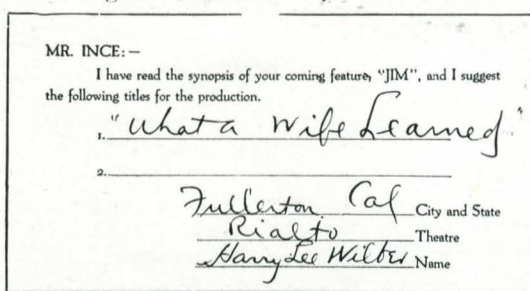 MR. INCE:—
I have read the synopsis of your coming feature, "JIM", and I suggest
the following titles for the production.
1. "What a Wife Learned"
2.
Fullerton Cal City and State
Rialto Theatre
Harry Lee Wilber Name